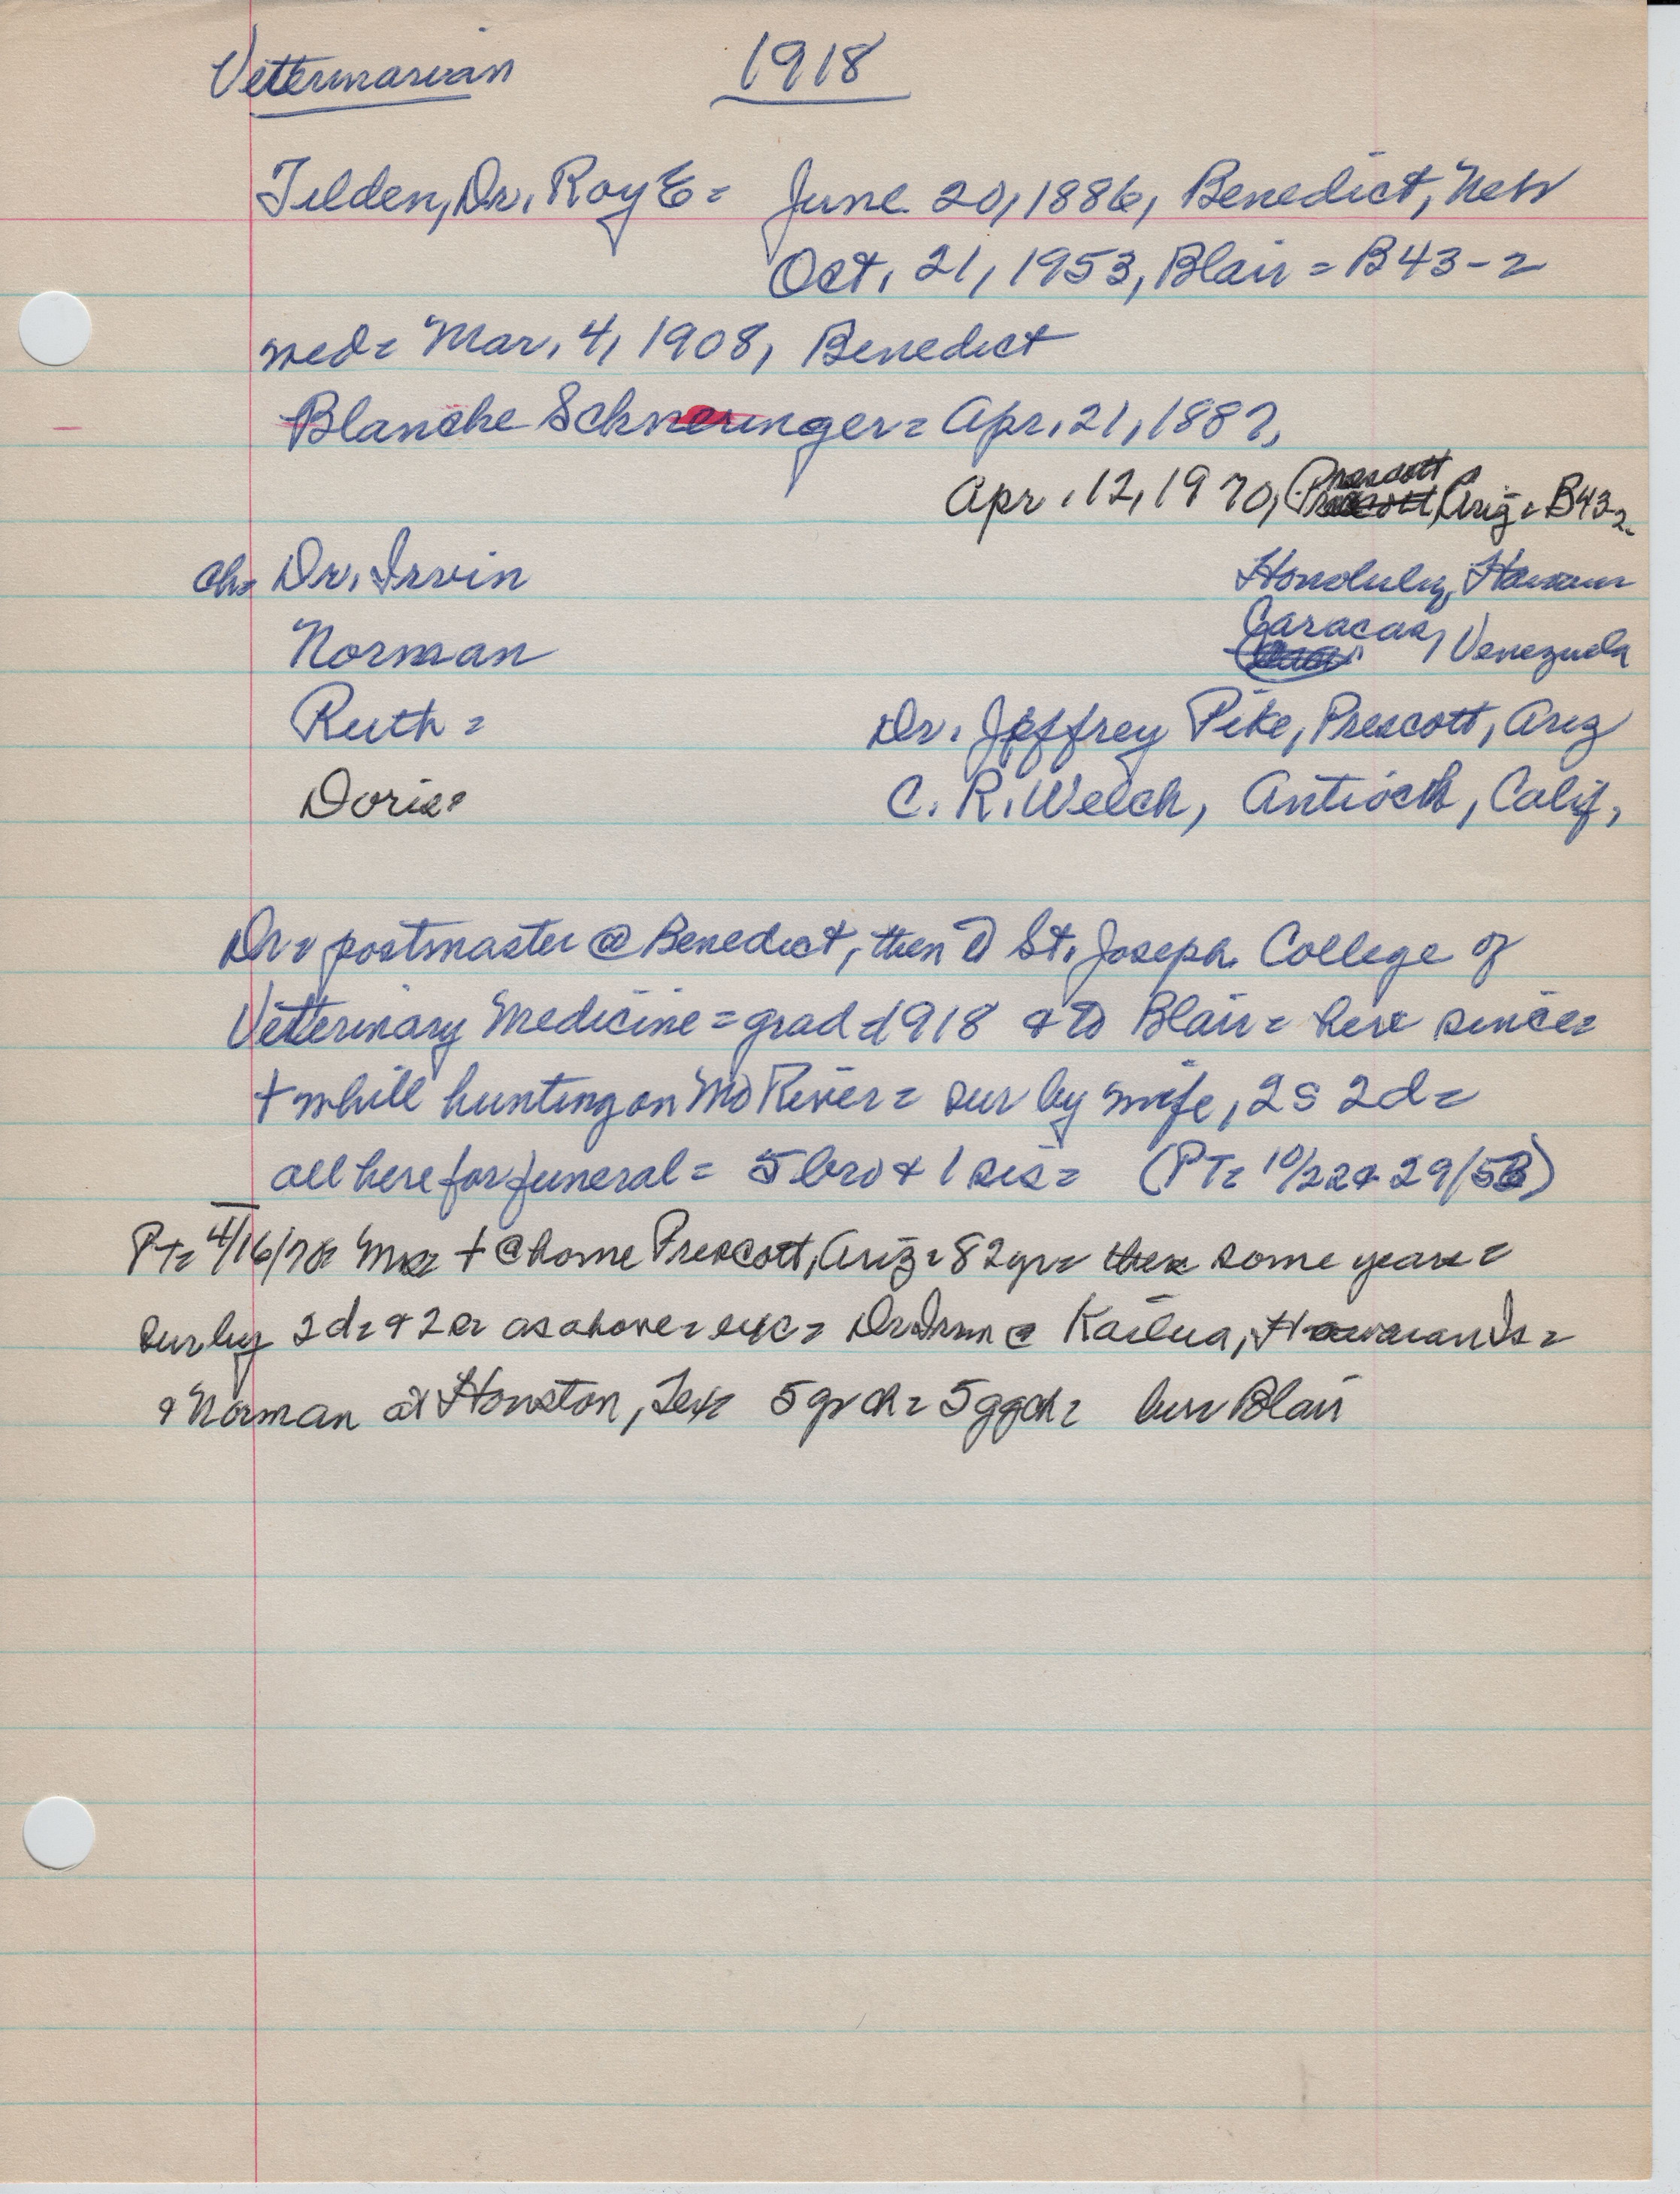 Vetternarian 1918
Tilden, Dr. Roy E = June 20, 1886, Benedict, Neb
Oct. 21, 1953, Blair = B43-2
med = Mar. 4, 1908, Benedict
Blanche Schneringer = Apr. 21, 1887,
Apr. 12, 1970, Prescott Ariz = B43-2
ch = Dr. Irvin Honolulu, Hawaii
Norman Caracas, Venezuela
Ruth = Dr. Jeffrey Pike, Prescott, Ariz
Doris = C. R. Welch, Antioch, Calif,
Dr = postmaster @ Benedict, then to St. Joseph College of
Vetterinary Medicine = grad 1918 & to Blair = here since =
+ while hunting on Mo River = sur by wife, 2s 2d =
all here for funeral = 5 bro & 1 sis = (PT = 10/22 & 29/53)
PT = 4/16/70 = Mrs + @ home Prescott, Ariz = 82 yr = there some years =
sur by 2d = & 2s = as above = exc = Dr. Irvin @ Kailua, Hawaiian Is =
& Norman at Houston, Tex 5 gr ch = 5 ggch = bur Blair